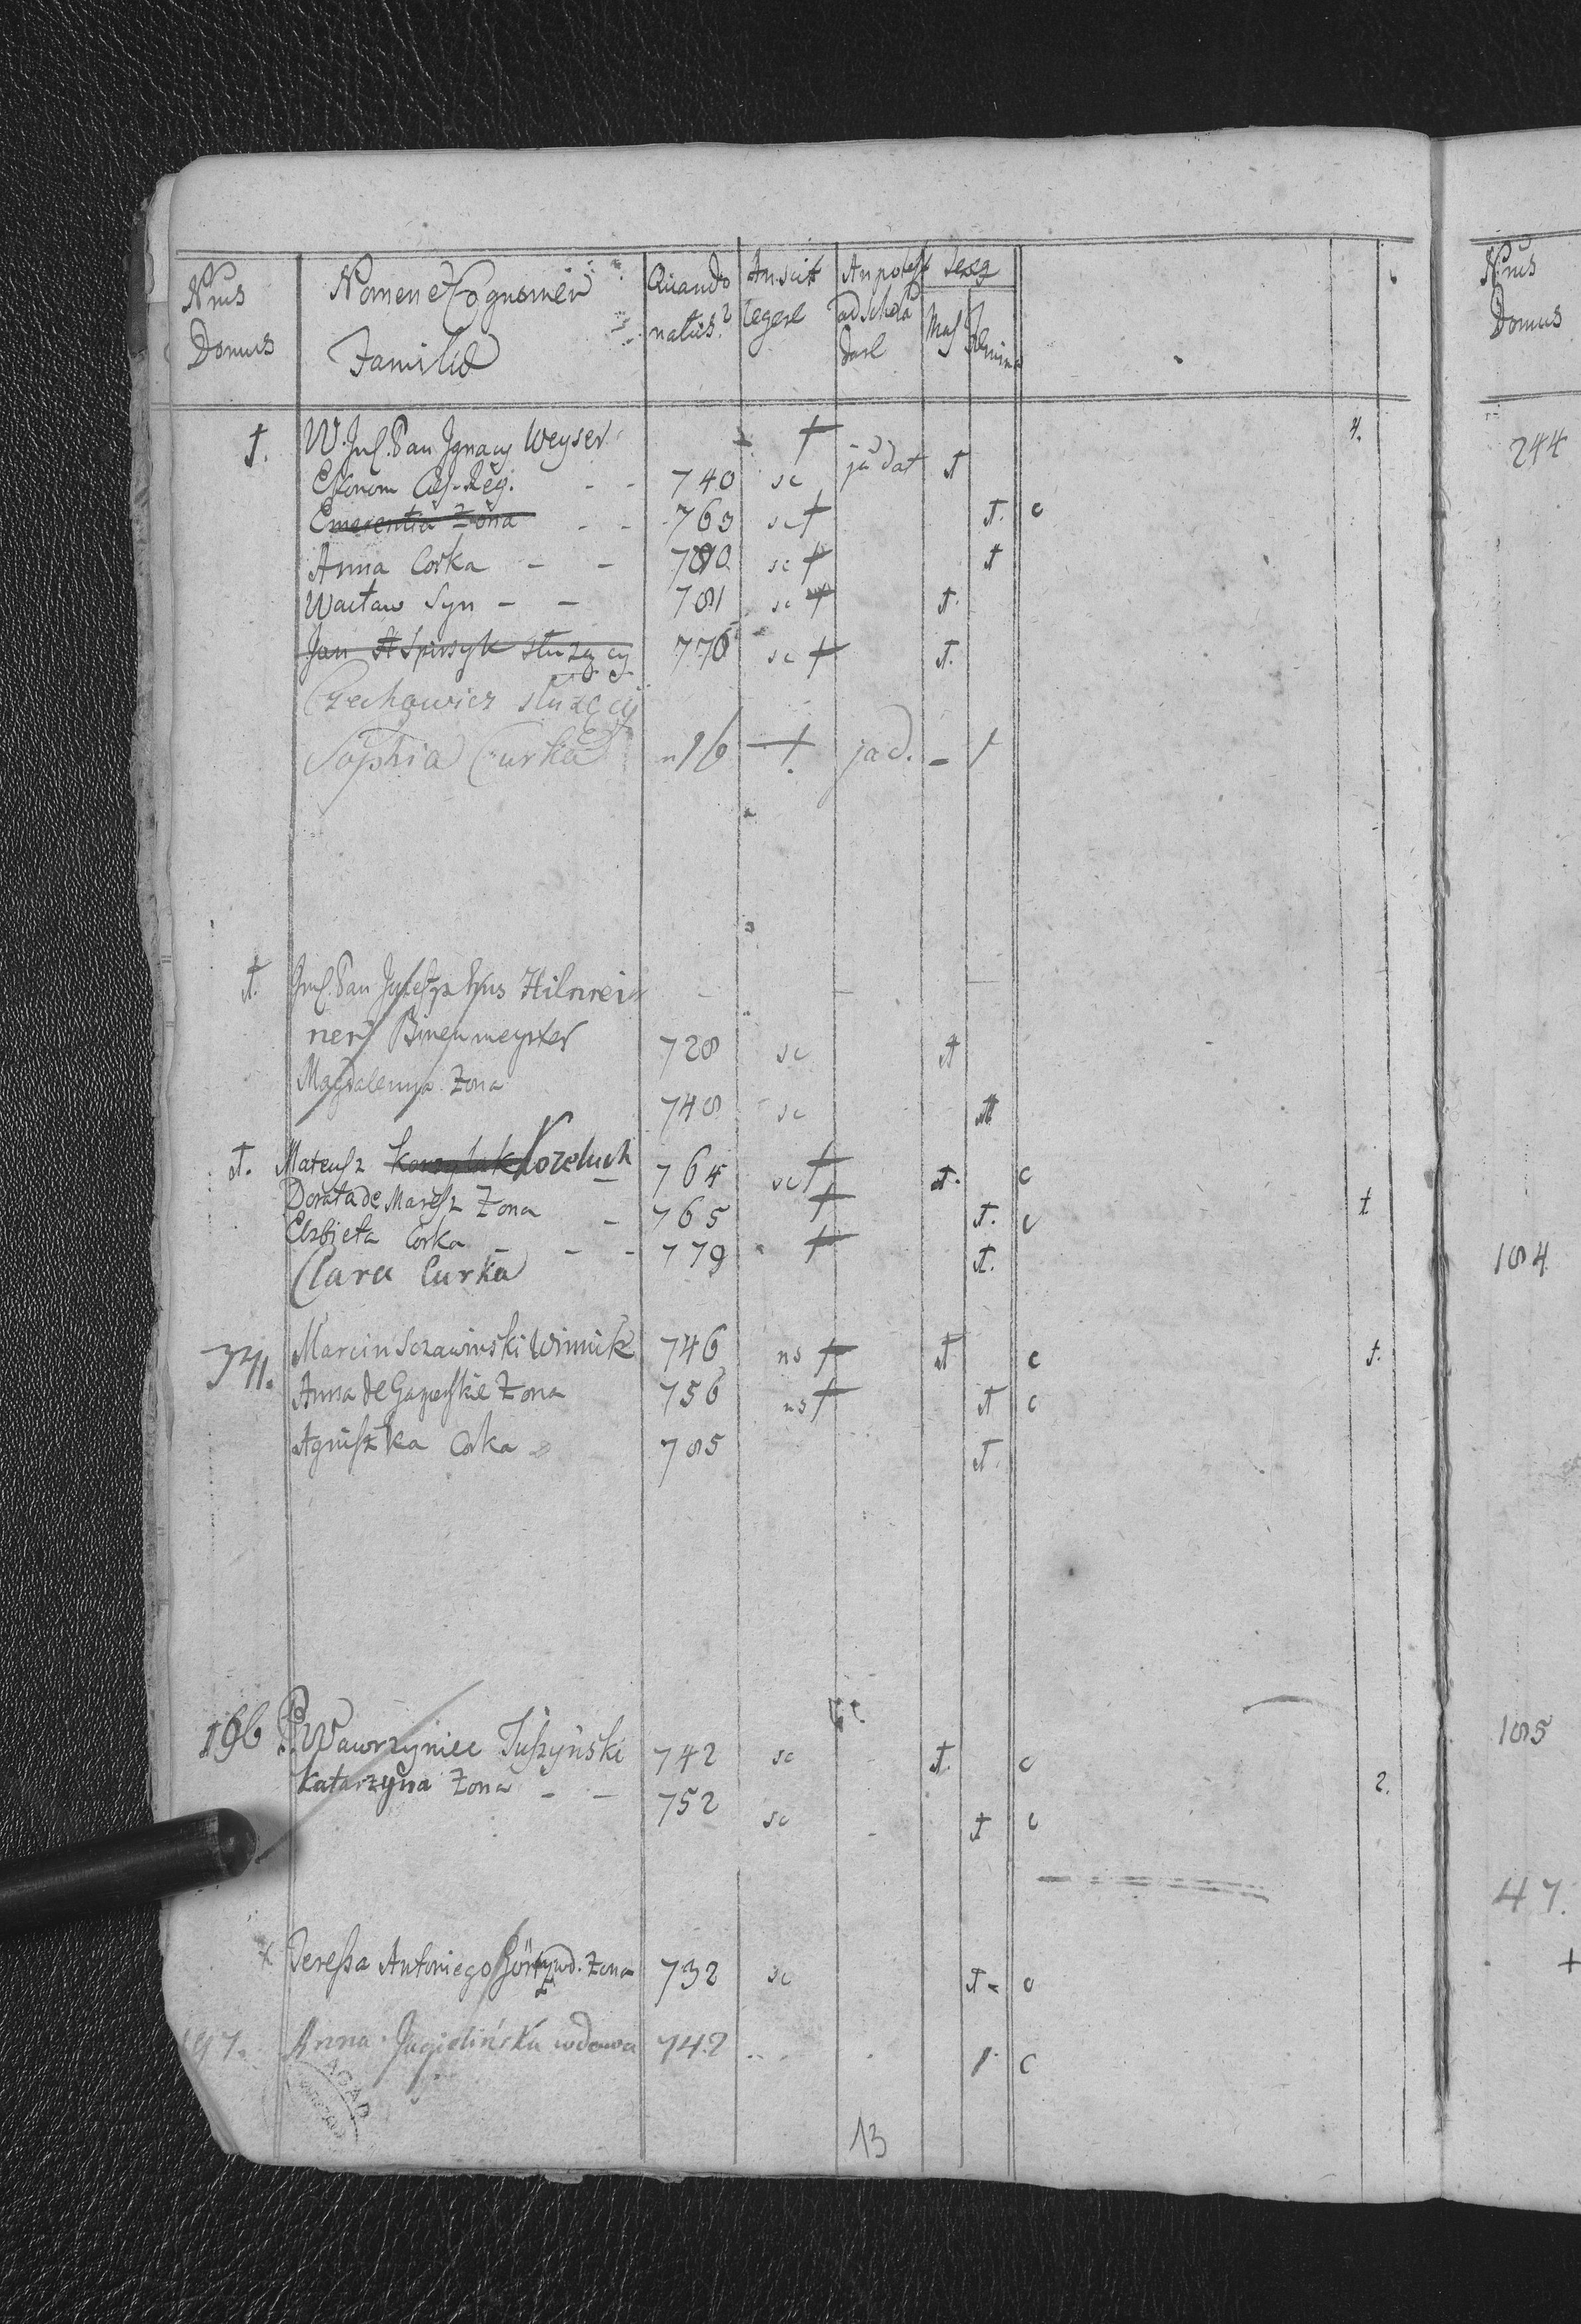 Nrus Domus | Nomen et Cognomen Familiae | Quando natus? | An scit legere | An potest ad Schola dare | Sexq | Mas | Femina
1. W. Jmć. Pan Jgnacy Weyser †
Ekonom Ces. Reg. - - 740 sc ja dat 1 4.
Emerentia Zona - - 763 sc † 1. c
Anna Corka - - 780 sc † 1
Wacław Syn - - 781 sc † 1.
Jan służący 776 sc † 1.
Czechowicz służący
Sophia Curka n 16 † jad. - 1
1. Jmć. Pan Josephus Hilnrei
ner Binenmeyster 728 sc 1
Magdalenna Zona 748 sc 1
1. Mateusz Kozeluch 764 sc † 1. c
Dorota de Maresz Zona - 765 † 1. c 1
Elzbieta Corka - - - 779 † 1.
Clara Curka
371. Marcin Sczawinski Winnik 746 ns † 1 c 1.
Anna de Zona 756 ns † 1 c
Agniszka Corka 785 1.
196 P. Wawrzyniec Tuszyński 742 sc 1. c
Katarzyna Zona - - 752 sc 1 c 2.
x Teressa Antoniego wd. Zona 732 sc 1 - c
197. Anna Jagielińska wdowa 742 1. c
AGAD
13
Nrus
Domus
244
184
185
47.
+